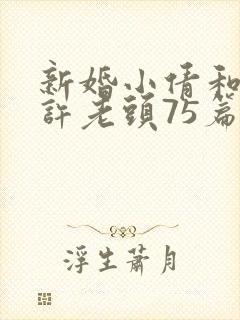 新婚小倩和
許老頭75篇
浮生蕭月